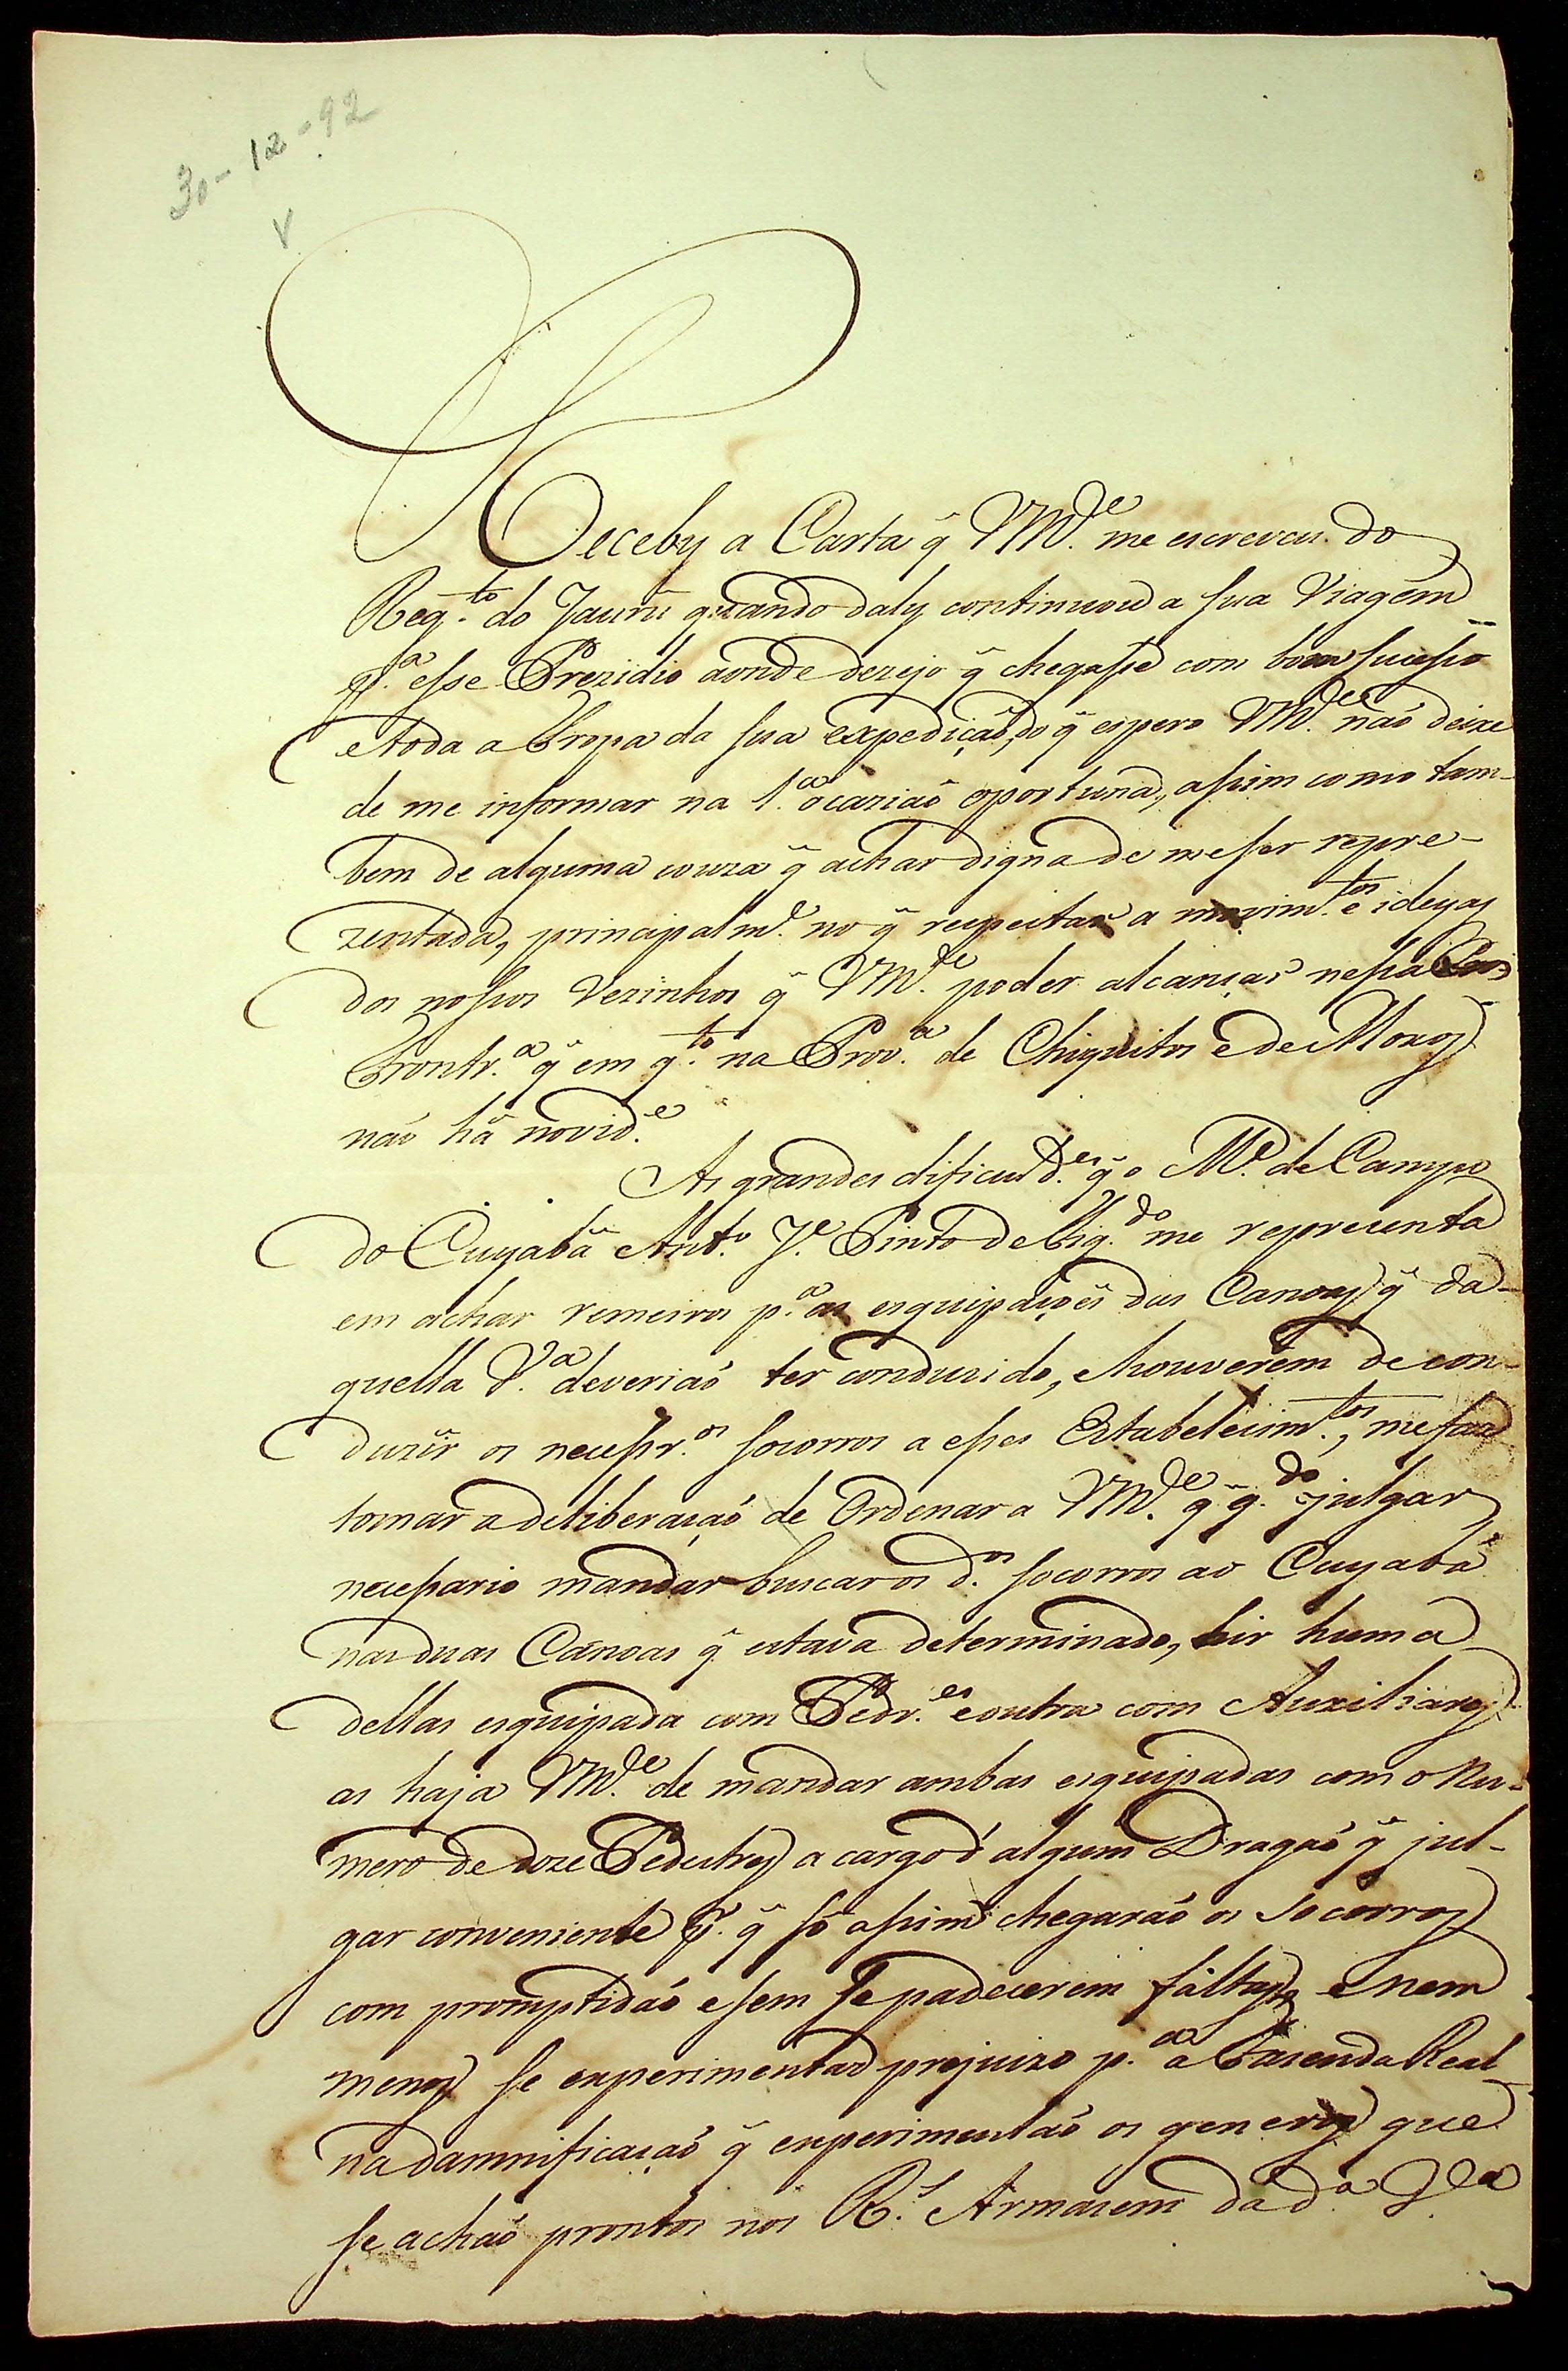 30-12-92
V
Receby a Carta q̃ VM.ce me escreveu do
Reg.to do Jaurú quando daly continuou a sua Viagem
p.a esse Prezidio aonde dezejo q̃ chegasse com bom sucesso
e toda a Tropa da sua expedição, do q̃ espero VM.ce não deixe
de me informar na 1.a ocazião oportuna, assim como tam-
bem de alguma couza q̃ achar digna de me ser repre-
zentada, principalm.e no q̃ respeitar a movim.tos e ideyas
dos nossos Vezinhos q̃ VM.ce poder alcançar nessa
Frontr.a q̃ em q.to na Prov.a de Chiquitos e de Moxos
não há novid.e
As grandes dificuld.es q̃ o M.e de Campo
do Cuyabá Ant.o J.e Pinto de Fig.do me representa
em achar remeiros p.a as esquipações das Canoas q̃ da-
quella V.a deverião ter conduzido, e houverem de con-
duzir os necessr.os socorros a esses Estabelecim.tos, me faz
tomar a deliberação de Ordenar a VM.ce q̃ q.do julgar
necessario mandar buscar os d.os socorros ao Cuyabá
nas duas Canoas q̃ estava determinado, hir huma
dellas esquipada com Pedr.es e outra com Auxiliares
as haja VM.ce de mandar ambas esquipadas com o nu-
mero de doze Pedestres a cargo d'algum Dragão q̃ jul-
gar conveniente p.r q̃ só assim chegarão os socorros
com promptidão e sem se padecerem faltas, e nem
menos se experimentar prejuizo p.a a Fazenda Real
na damnificação q̃ experimentão os generos que
se achão prontos nos R.s Armazem da d.a V.a